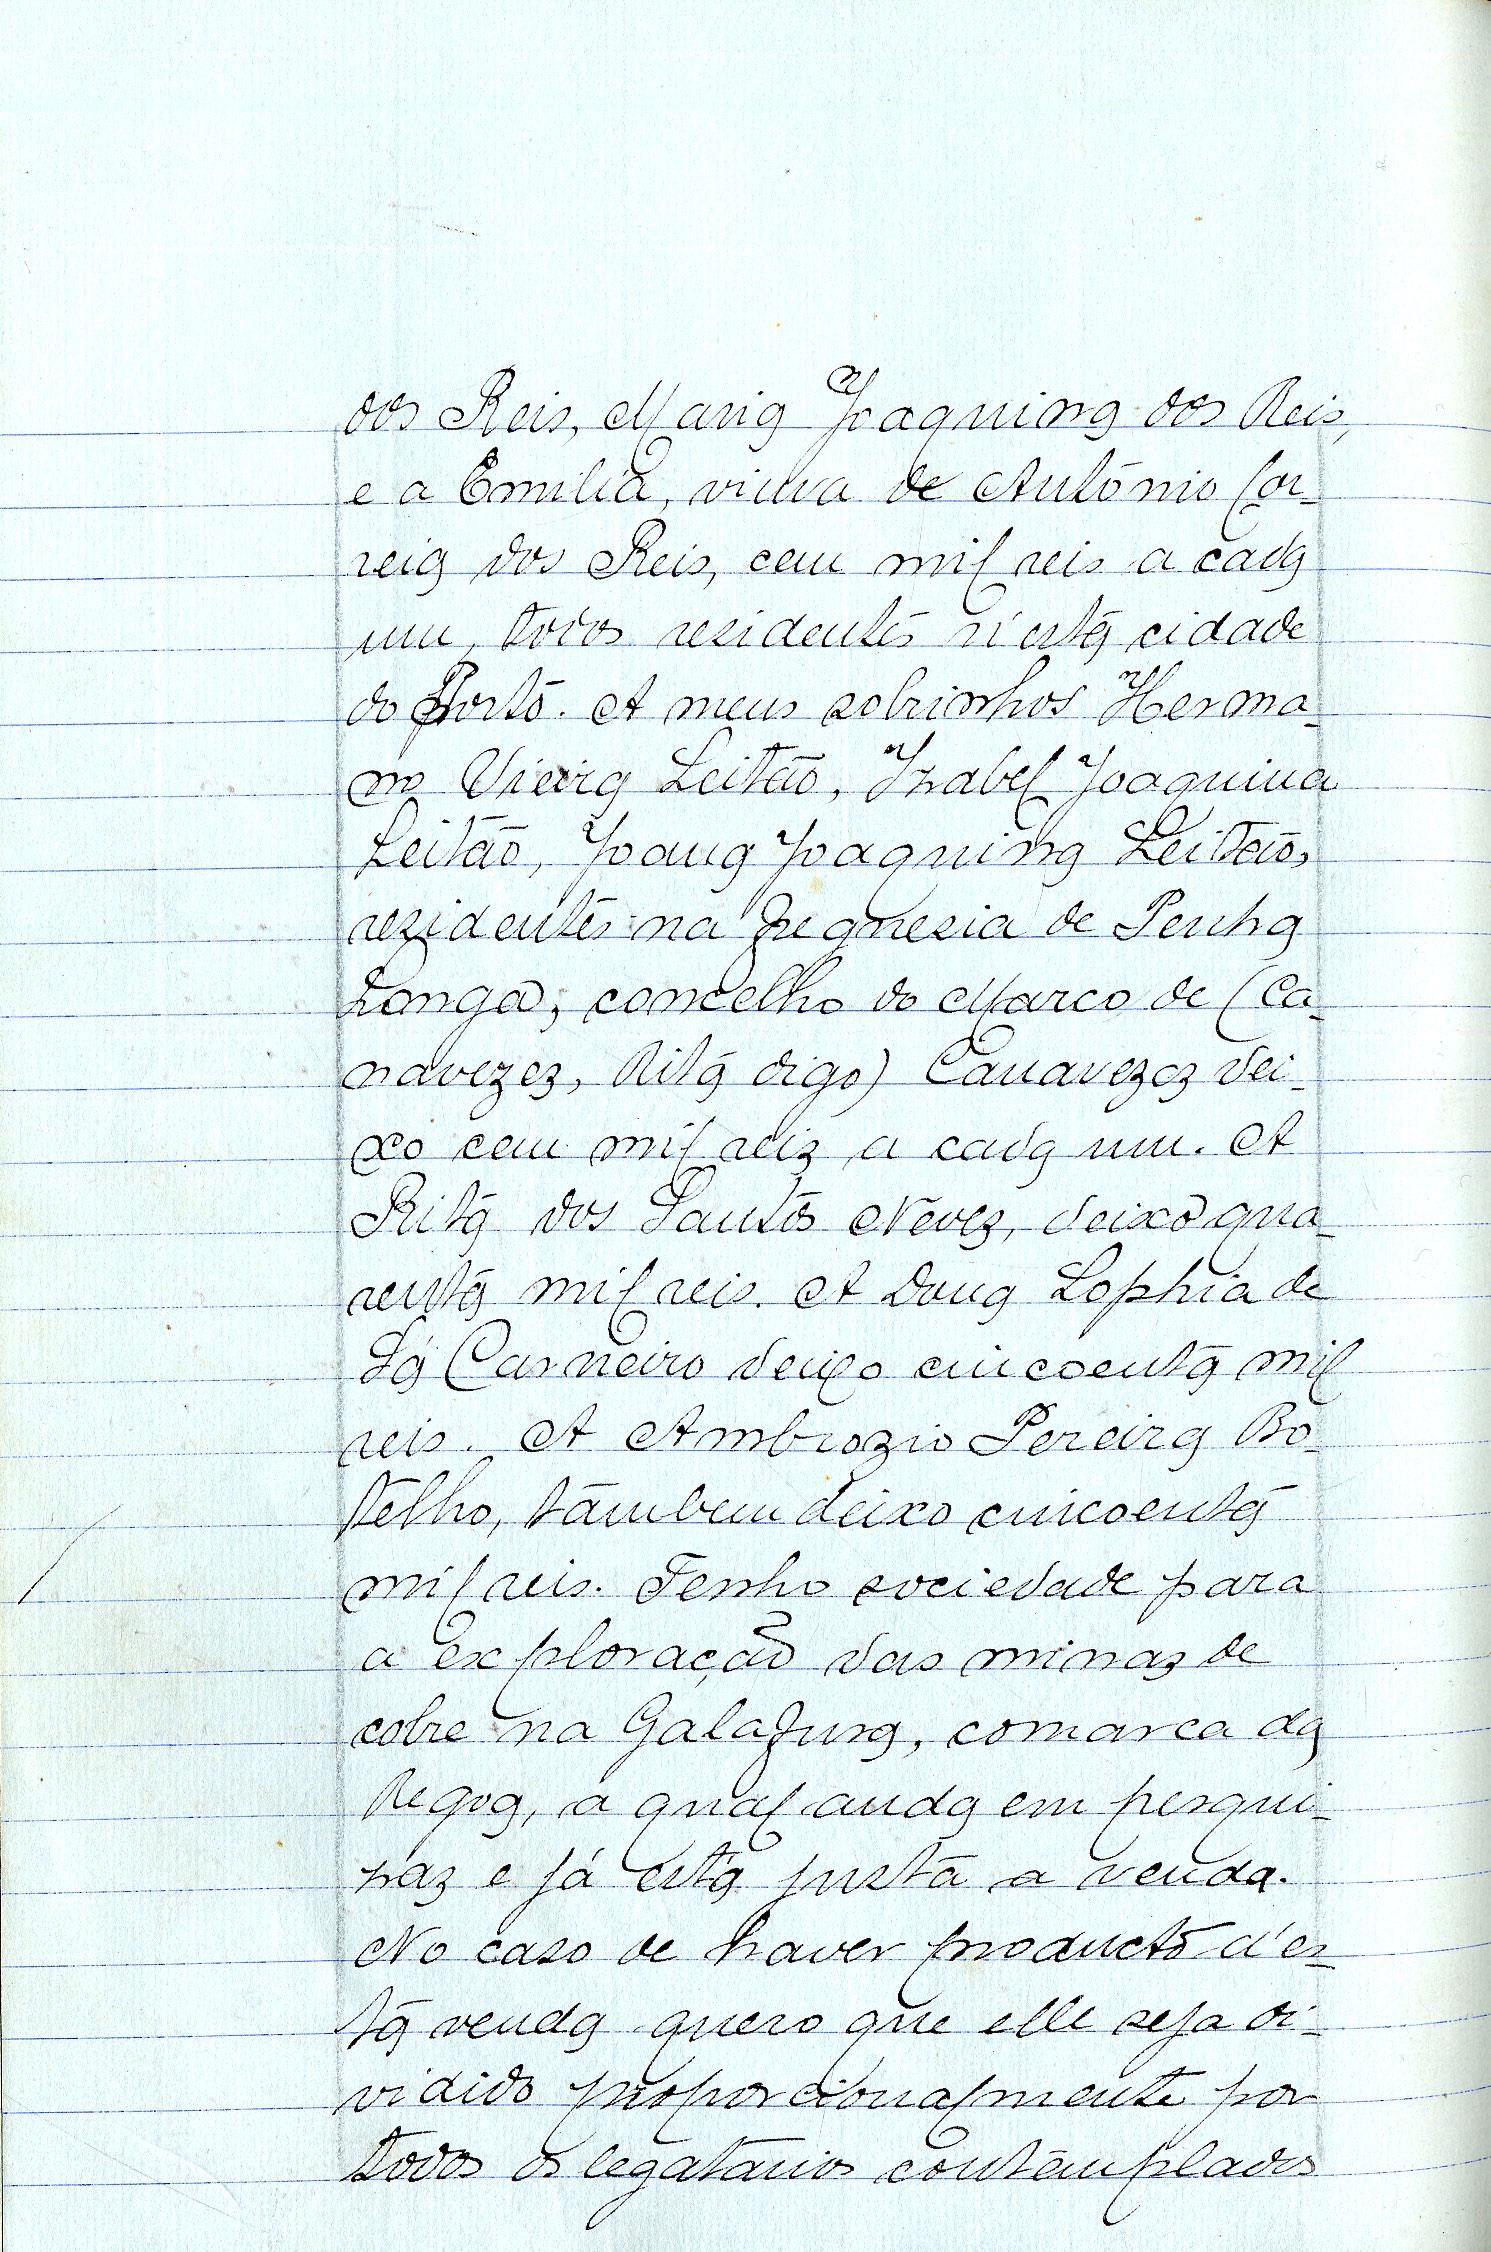 dos Reis, Maria Joaquina dos Reis,
e a Emilia, viuva de António Cor-
reia dos Reis, cem mil reis a cada
um, todos residentes n'esta cidade
do Porto. A meus sobrinhos Herma-
no Vieira Leitão, Izabel Joaquina
Leitão, Joana Joaquina Leitão,
rezidentes na freguesia de Penha
Longa, concelho do Marco de (Ca-
navezez, Rita digo) Canavezez dei-
xo cem mil reiz a cada um. A
Rita dos Santos Nevez, deixo qua-
renta mil reis. A Dona Sophia de
Sá Carneiro deixo cincoenta mil
reis. A Ambrozio Pereira Bo-
telho, tambem deixo cincoenta
mil reis. Tenho sociedade para
a exploração das minaz de
cobre na Galafura, comarca da
Regoa, a qual anda em pesqui-
zaz e já está justa a venda.
No caso de haver producto d'es-
ta venda quero que elle seja di-
vidido proporcionalmente por
todos os legatarios contemplados